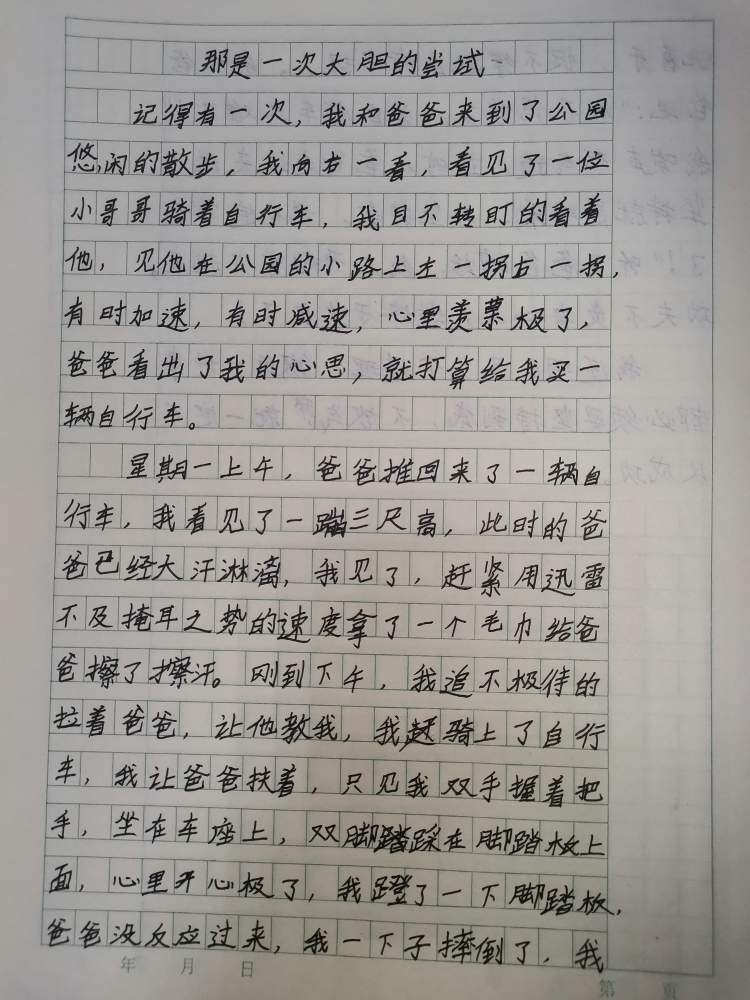 那是一次大胆的尝试
记得有一次，我和爸爸来到了公园
悠闲的散步，我向右一看，看见了一位
小哥哥骑着自行车，我目不转盯的看着
他，见他在公园的小路上左一拐右一拐，
有时加速，有时减速，心里羡慕极了，
爸爸看出了我的心思，就打算给我买一
辆自行车。
星期一上午，爸爸推回来了一辆自
行车，我看见了一蹦三尺高，此时的爸
爸已经大汗淋漓，我见了，赶紧用迅雷
不及掩耳之势的速度拿了一个毛巾给爸
爸擦了擦汗。刚到下午，我追不极待的
拉着爸爸，让他教我，我骑上了自行
车，我让爸爸扶着，只见我双手握着把
手，坐在车座上，双脚踩在脚踏板上
面，心里开心极了，我蹬了一下脚踏板，
爸爸没反应过来，我一下子摔倒了，我
年 月 日
第 页